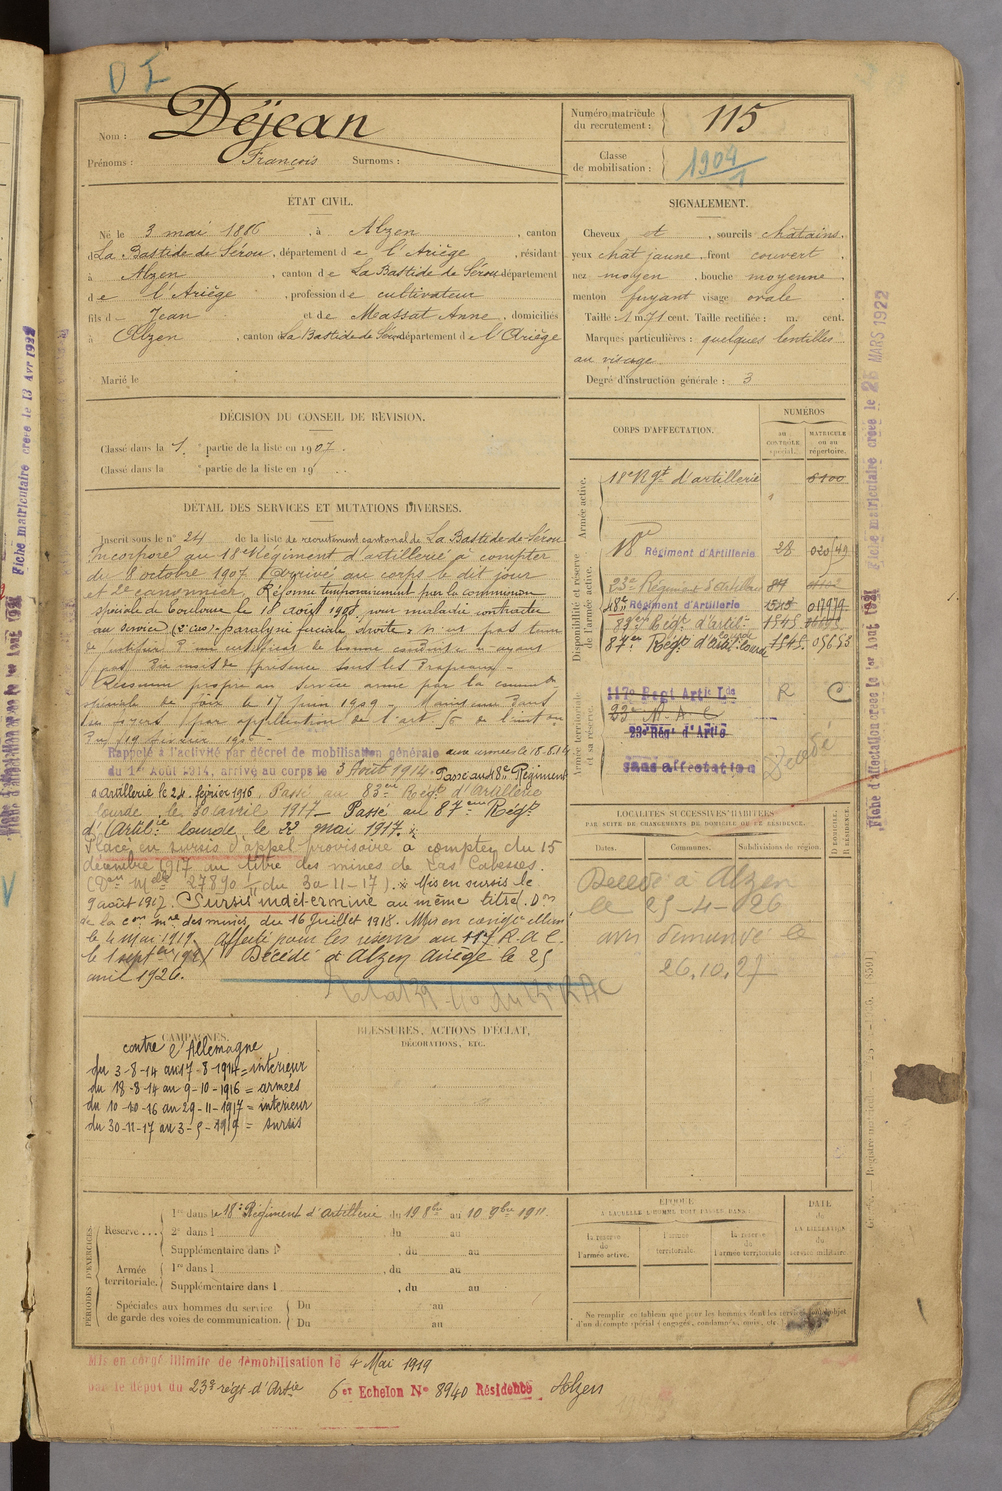 D I
Nom : Déjean
Prénoms : François Surnoms :
Numéro matricule du recrutement : 115
Classe de mobilisation : 1904/1
ÉTAT CIVIL.
Né le 3 mai 1886, à Alzen, canton
d La Bastide de Sérou, département de l'Ariège, résidant
à Alzen, canton de La Bastide de Sérou département
de l'Ariège, profession de cultivateur
fils d Jean et de Massat Anne, domiciliés
à Alzen, canton La Bastide de Sérou département de l'Ariège
Marié le
SIGNALEMENT.
Cheveux et, sourcils châtains.
yeux chât jaune, front couvert,
nez moyen, bouche moyenne,
menton fuyant visage ovale.
Taille : 1 m. 71 cent. Taille rectifiée : m. cent.
Marques particulières : quelques lentilles
au visage
Degré d'instruction générale : 3
DÉCISION DU CONSEIL DE RÉVISION.
Classé dans la 1e partie de la liste en 1907.
Classé dans la partie de la liste en 19
DÉTAIL DES SERVICES ET MUTATIONS DIVERSES.
Inscrit sous le n° 24 de la liste de recrutement cantonal de La Bastide-de-Sérou
Incorporé au 18e Régiment d'artillerie à compter
du 8 octobre 1907. Arrivé au corps le dit jour
et 2e canonnier. Réformé temporairement par la commission
spéciale de Toulouse le 18 août 1908, pour maladie contractée
au service - paralysie faciale droite, n'est pas tenu
de justifier d'un certificat de bonne conduite n'ayant
pas dix mois de présence sous les Drapeaux -
Reconnu propre au service armé par la commission
spéciale de Foix le 17 juin 1909 - Maintenu dans
ses foyers par application de l'art.
Rappelé à l'activité par décret de mobilisation générale aux armées le 18.8.14
du 1er Août 1914, arrivé au corps le 3 Août 1914. Passé au 48e Régiment
d'artillerie le 24 février 1916. Passé au 83ème Régt d'Artillerie
lourde le 30 avril 1917 - Passé au 87ème Régt
d'Artillie lourde, le 22 mai 1917. x
Placé en sursis d'appel provisoire à compter du 15
décembre 1917 au titre des mines de Las Cabesses.
27890 du 30-11-17). x Mis en sursis le
9 août 1917. Sursis indéterminé au même titre. Don
de la con mre des mines du 16 Juillet 1918. Mis en congé illim.
le 4 Mai 1919. Affecté pour les réserves au 117 R.A.L.
le 1 septbre 1921 Décédé à Alzen Ariège le 25
avril 1926.
CORPS D'AFFECTATION.
NUMÉROS
AU CONTROLE spécial.
MATRICULE ou au répertoire.
Armée active.
18e Rgt d'artillerie 8100
Disponibilité et réserve de l'armée active.
18e Régiment d'Artillerie 28
23e Régiment d'artillerie
48e Régiment d'Artillerie 1545 017979
83ème Régt d'artil. 1545
87ème Régt d'artil. lourde 1545 05653
Armée territoriale et sa réserve.
117e Regt Artie Lde R C
23e R.A.C
23e Rég' d'Artie
Sans affectation
Décédé
LOCALITÉS SUCCESSIVES HABITÉES
PAR SUITE DE CHANGEMENTS DE DOMICILE OU DE RÉSIDENCE.
Dates. Communes. Subdivisions de région.
D DOMICILE. R RÉSIDENCE.
Décédé à Alzen
le 25-4-26
avis demandé le
26.10.27
CAMPAGNES.
contre l'Allemagne
du 3-8-14 au 17-8-1914 = intérieur
du 18-8-14 au 9-10-1916 = armées
du 10-10-16 au 29-11-1917 = intérieur
du 30-11-17 au 3-5-1919 = sursis
BLESSURES, ACTIONS D'ÉCLAT,
DÉCORATIONS, ETC.
PÉRIODES D'EXERCICES
Réserve ... 1re dans le 18e Régiment d'artillerie du 19 8bre au 10 9bre 1911.
2e dans l , du au
Supplémentaire dans l , du au
Armée territoriale. 1re dans l , du au
Supplémentaire dans l , du au
Spéciales aux hommes du service de garde des voies de communication. Du au
Du au
ÉPOQUE
A LAQUELLE L'HOMME DOIT PASSER DANS :
la réserve de l'armée active.
l'armée territoriale.
la réserve de l'armée territoriale
DATE de LA LIBÉRATION du service militaire
Ne remplir ce tableau que pour les hommes dont les services font l'objet
d'un décompte spécial (engagés, condamnés, omis, etc.)
Mis en congé illimité de démobilisation le 4 Mai 1919
par le dépôt du 23e régt d'Artie 6er Echelon N° 8940 Résidence Alzen
Fiche matriculaire créée le 25 MARS 1922
Fiche d'affectation créée le 1er Août 1921
Fiche matriculaire créée le 13 Avr 1922